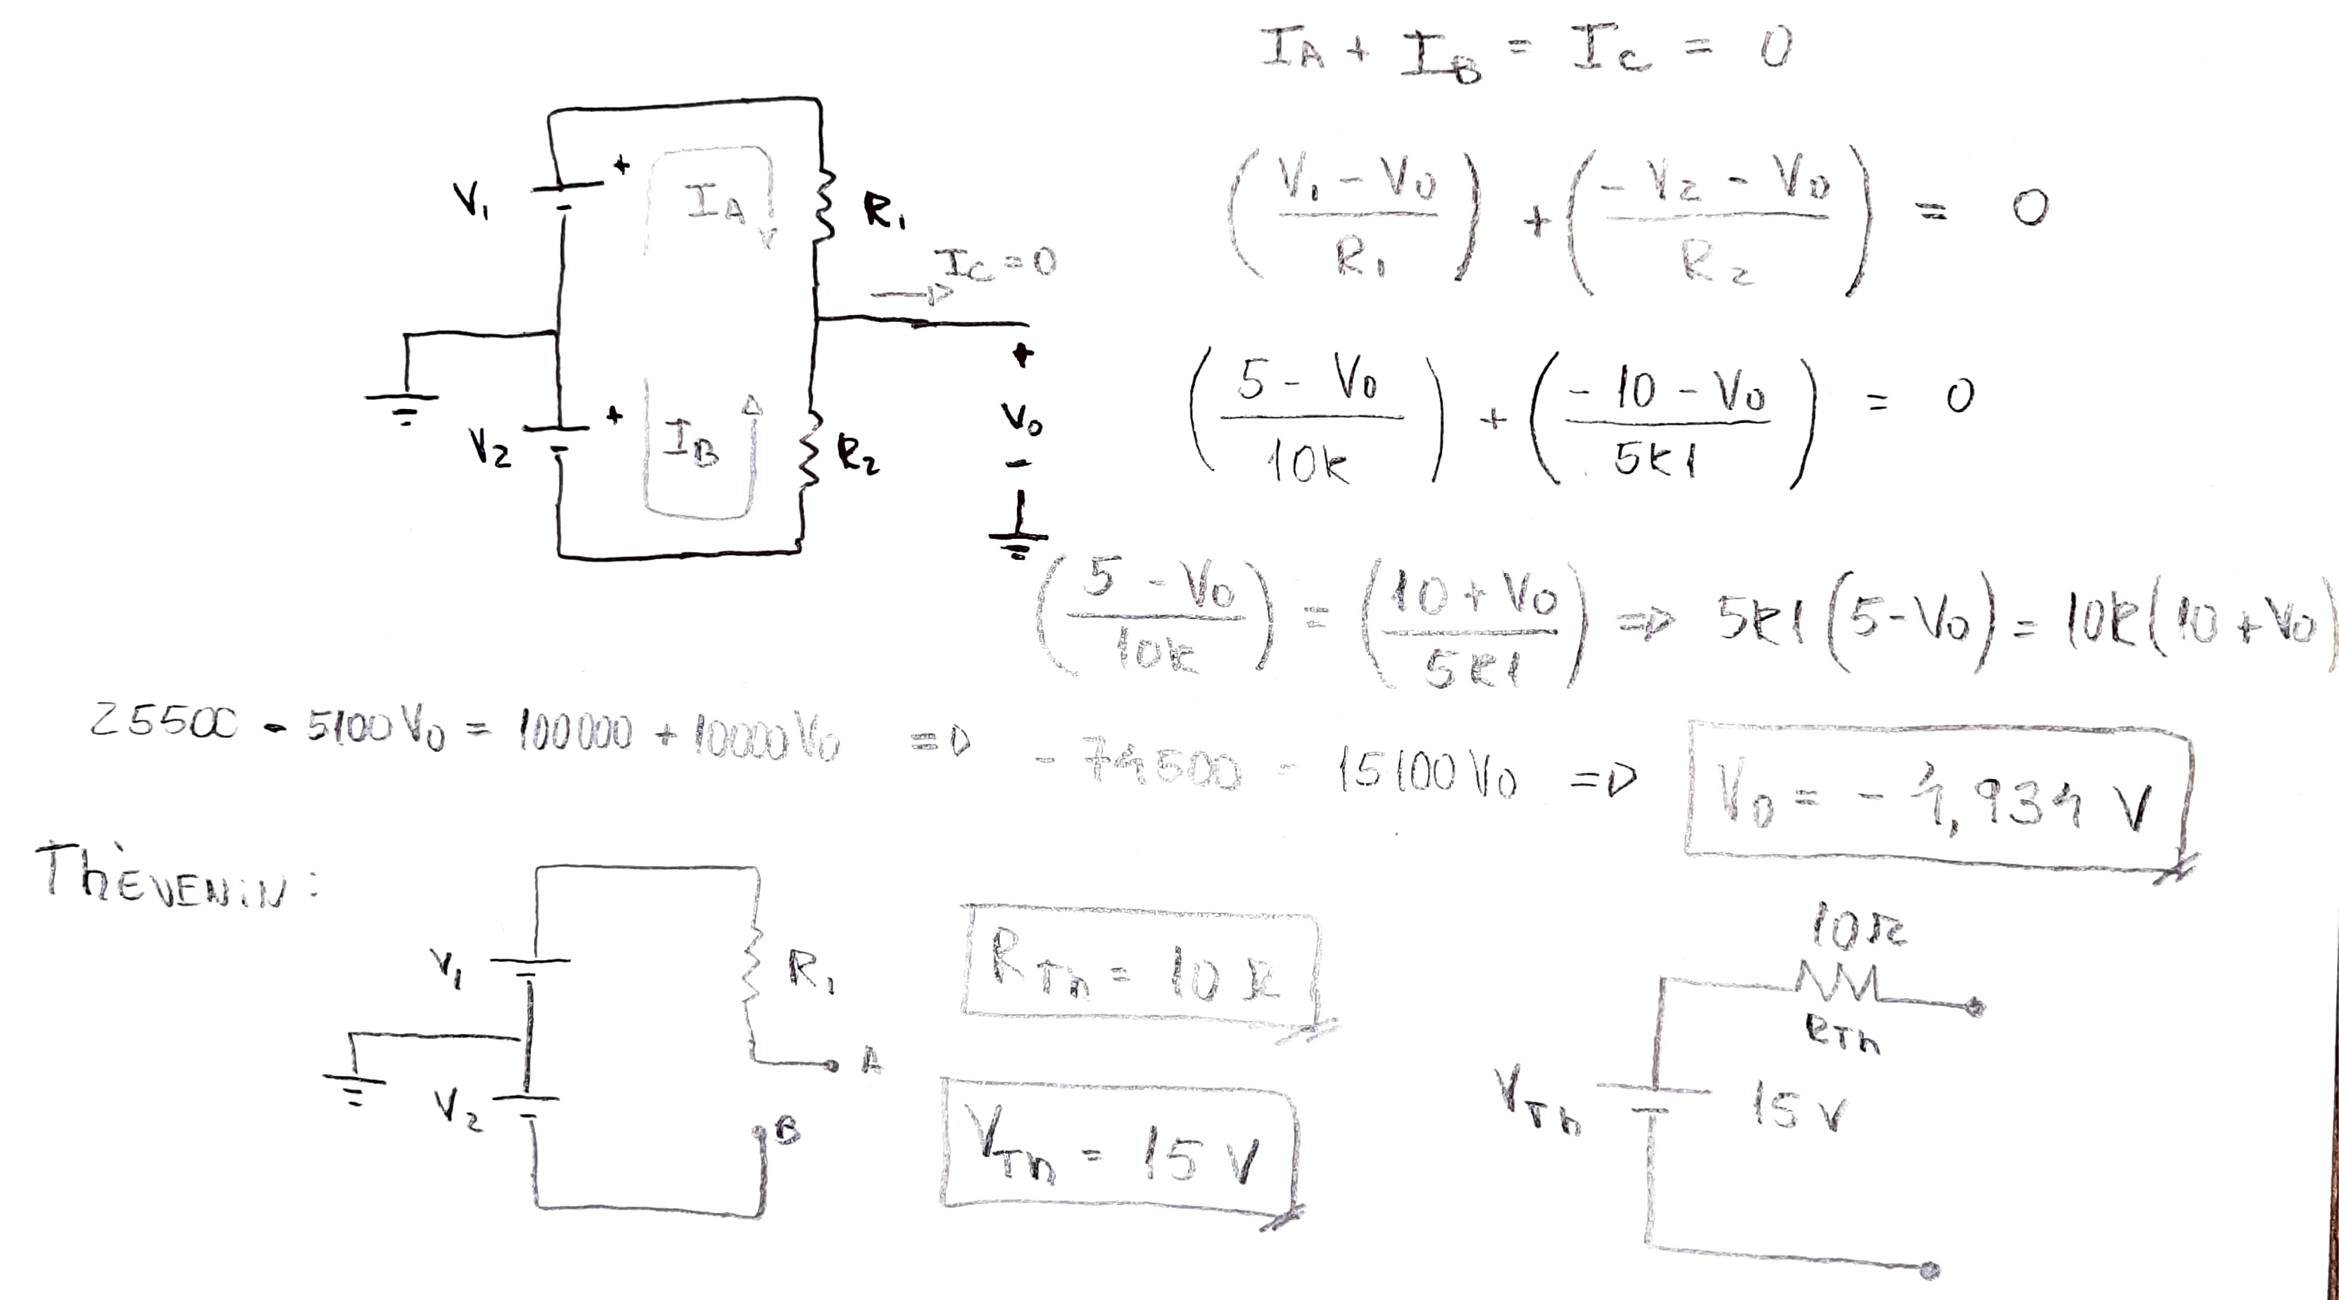 I_A + I_B = I_C = 0
V_1 + I_A R_1
I_C = 0
(V_1 - V_0 / R_1) + (-V_2 - V_0 / R_2) = 0
V_2 + I_B R_2
+ V_0 -
(5 - V_0 / 10k) + (-10 - V_0 / 5k1) = 0
(5 - V_0 / 10k) = (10 + V_0 / 5k1) => 5k1 (5 - V_0) = 10k (10 + V_0)
25500 - 5100 V_0 = 100000 + 10000 V_0 => - 74500 = 15100 V_0 => V_0 = - 4,934 V
ThÈVENiN:
V_1 R_1
A
V_2
B
R_Th = 10 Ω
V_Th = 15 V
10 Ω
R_Th
V_Th 15 V